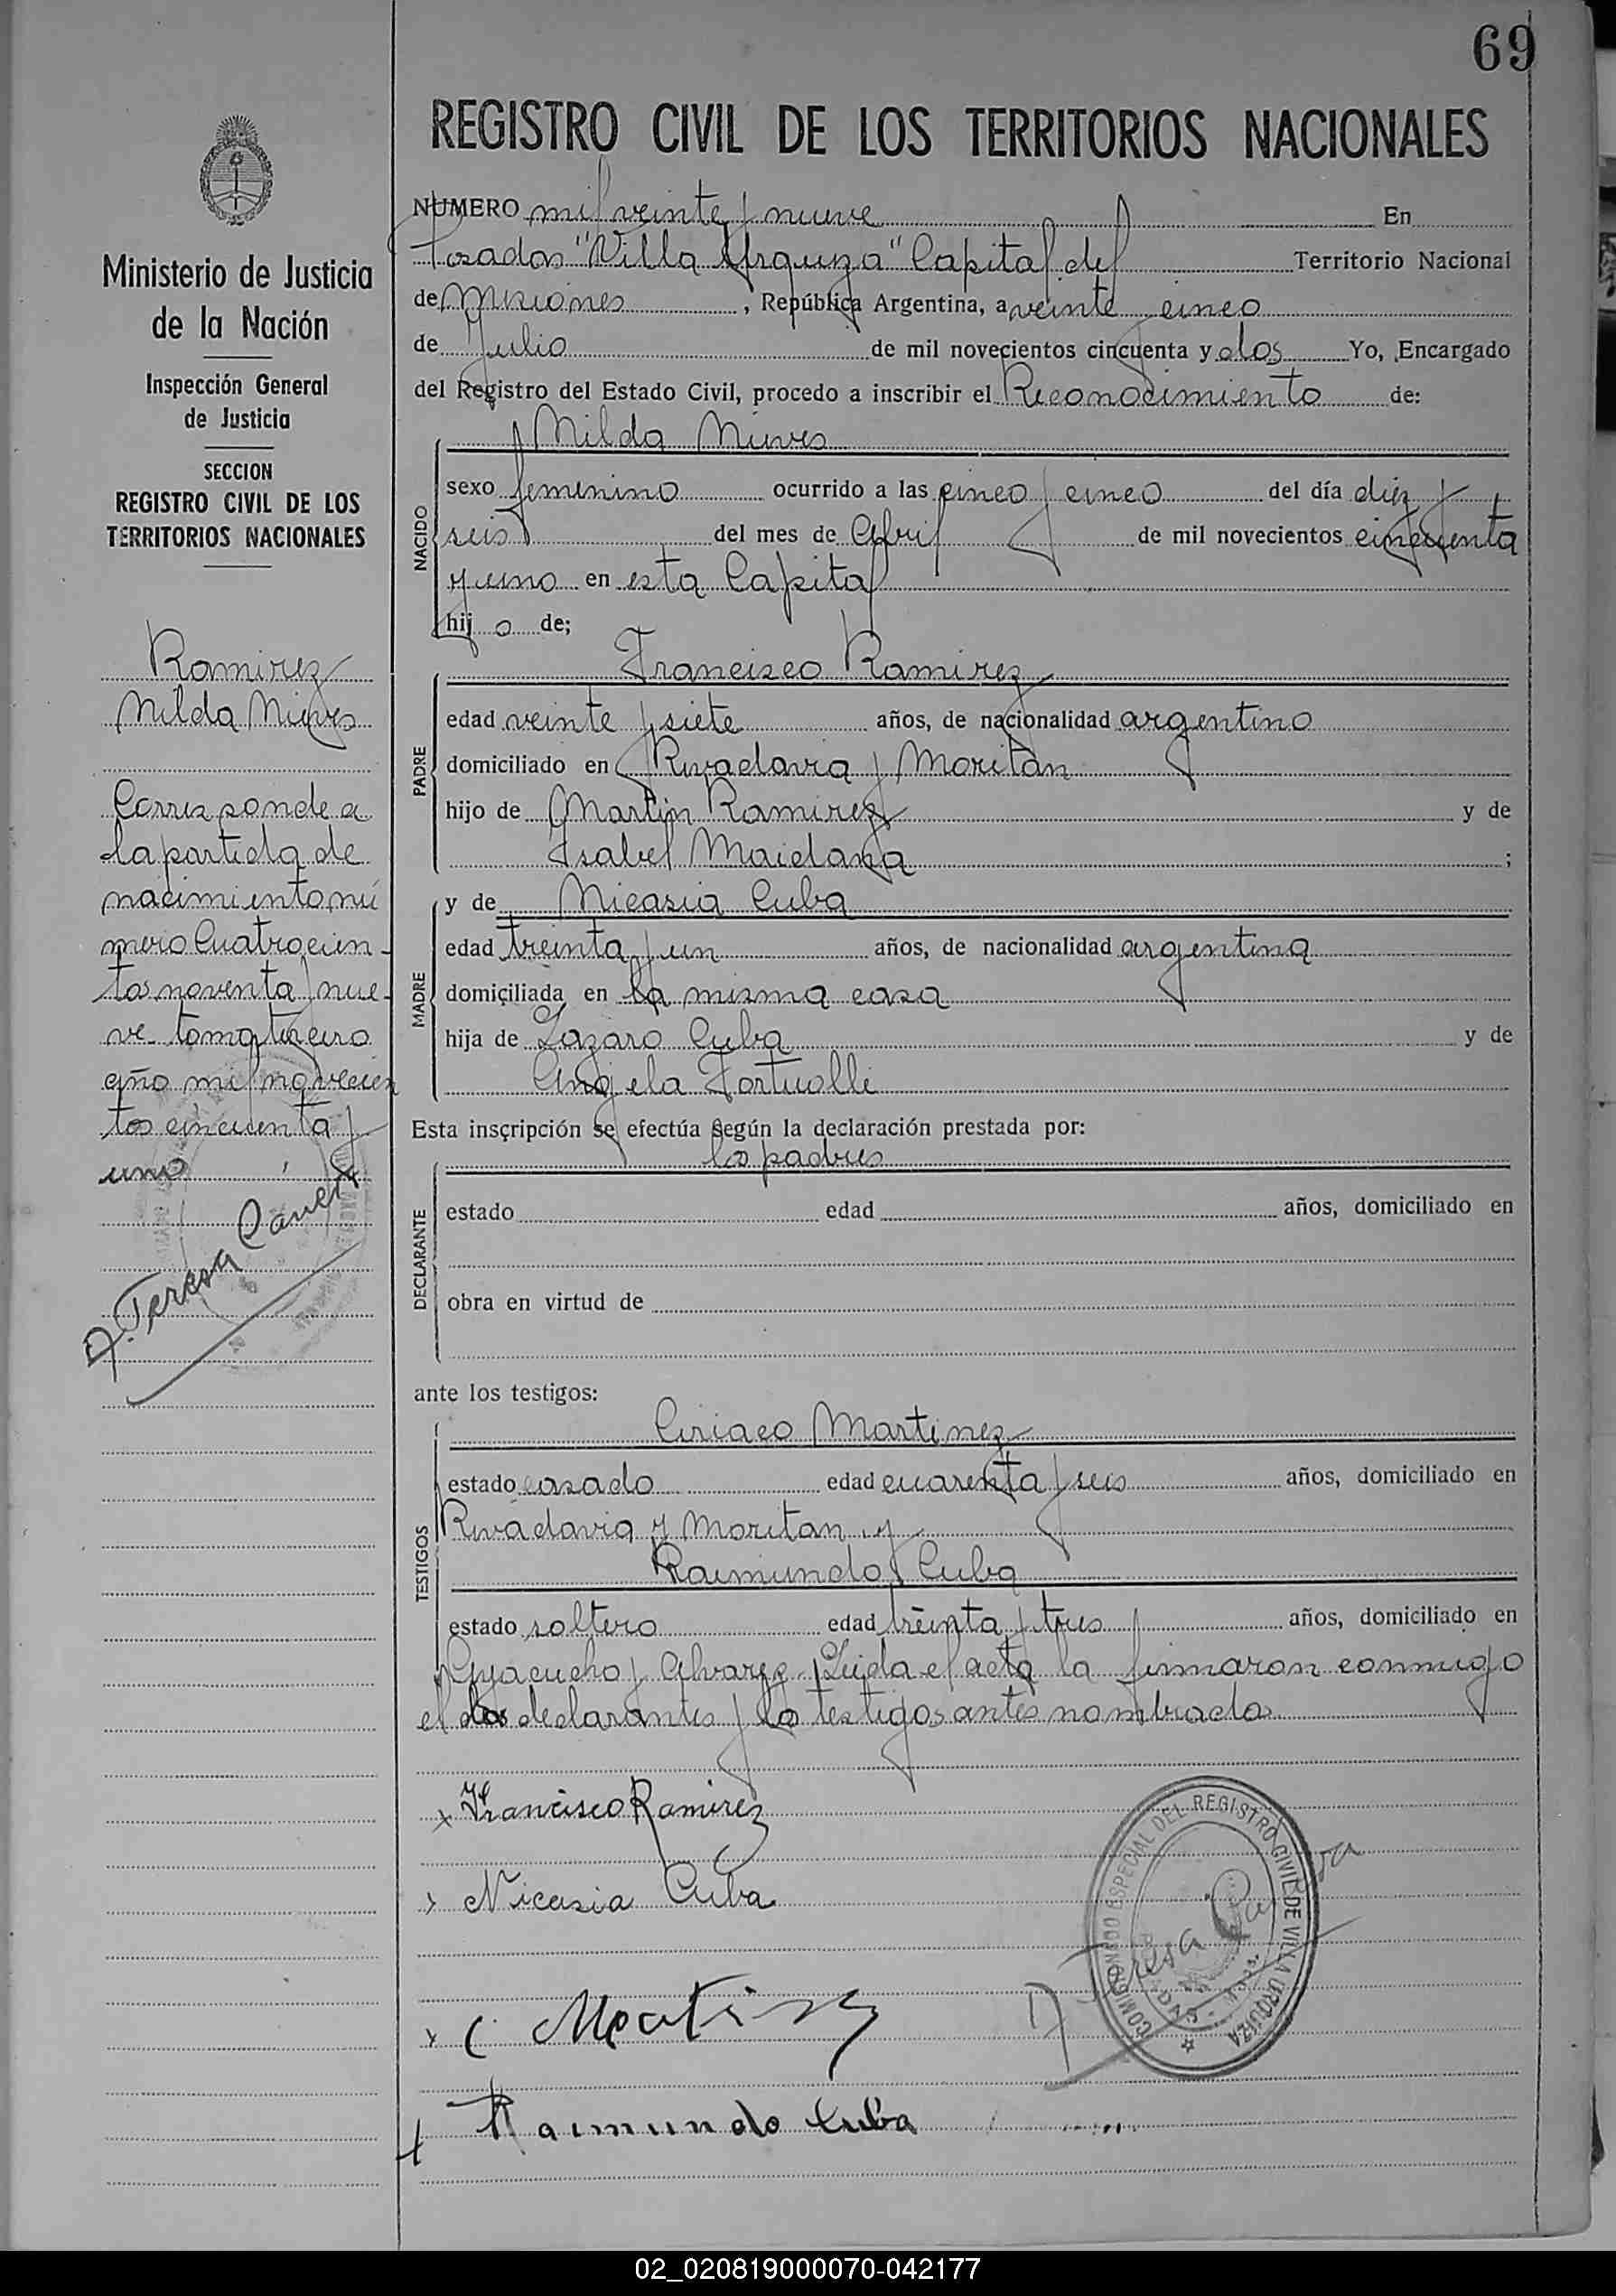 69
REGISTRO CIVIL DE LOS TERRITORIOS NACIONALES
Ministerio de Justicia
de la Nación
Inspección General
de Justicia
SECCION
REGISTRO CIVIL DE LOS
TERRITORIOS NACIONALES
Ramirez
Nilda Nieves
Corresponde a
la partida de
nacimiento nú
mero Cuatrocien-
tos noventa y nue-
ve tomo tercero
año mil novecien
tos cincuenta y
uno
D. Teresa
NUMERO mil veinte y nueve En
Posadas "Villa Urquiza" Capital del Territorio Nacional
de Misiones, República Argentina, a veinte y cinco
de Julio de mil novecientos cincuenta y dos Yo, Encargado
del Registro del Estado Civil, procedo a inscribir el Reconocimiento de:
NACIDO
Nilda Nieves
sexo femenino ocurrido a las cinco y cinco del día diez y
seis del mes de Abril de mil novecientos cincuenta
y uno en esta Capital
hij a de;
PADRE
Francisco Ramirez
edad veinte y siete años, de nacionalidad argentino
domiciliado en Rivadavia y Moritan
hijo de Martin Ramirez y de
Isabel Maidana ;
MADRE
y de Nicasia Cuba
edad treinta y un años, de nacionalidad argentina
domiciliada en la misma casa
hija de Lazaro Cuba y de
Angela
Esta inscripción se efectúa según la declaración prestada por:
los padres
DECLARANTE
estado edad años, domiciliado en
obra en virtud de
ante los testigos:
TESTIGOS
Ciriaco Martinez
estado casado edad cuarenta y seis años, domiciliado en
Rivadavia y Moritan y
Raimundo Cuba
estado soltero edad treinta y tres años, domiciliado en
Ayacucho y Alvarez. Leida el acta la firmaron conmigo
el dos declarantes y los testigos antes nombrados
x Francisco Ramirez
x Nicasia Cuba
x C. Martinez
x Raimundo Cuba
COMISIONADO ESPECIAL DEL REGISTRO CIVIL DE VILLA URQUIZA
D. Teresa
02_020819000070-042177